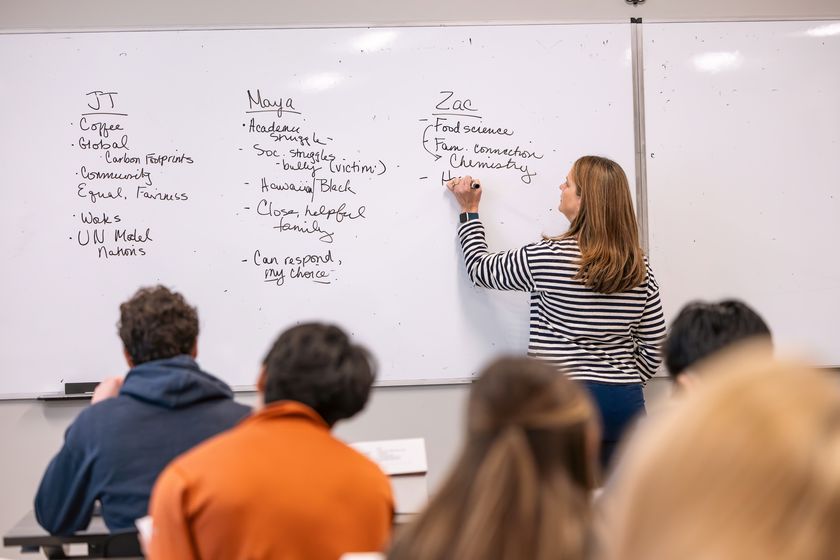 JT
· Coffee
· Global
Carbon Footprints
· Community
Equal, Fairness
· Woks
· UN Model
Nations
Maya
· Academic
struggle -
- Soc. struggles
- bully (victim)
- Hawaiian/Black
- Close, helpful
family
- Can respond,
my choice -
Zac
- Food science
Fam. connection
Chemistry
- H